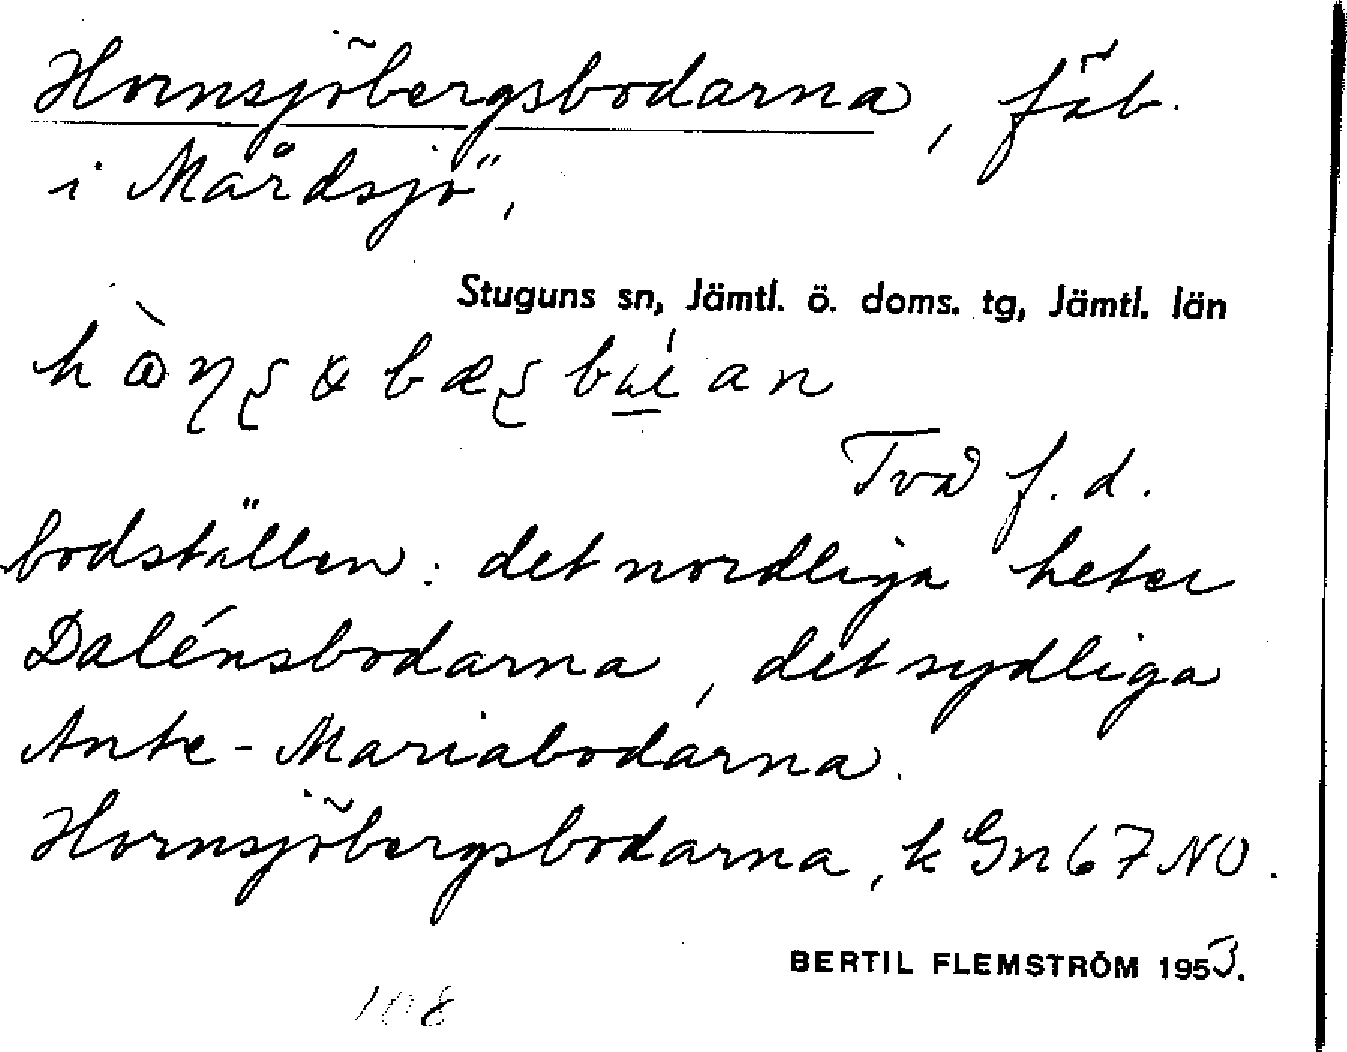 Hornsjöbergsbodarna, fäb.
i Mårdsjö,
Stuguns sn, Jämtl. ö. doms. tg, Jämtl. län
Två f. d.
bodställen: det nordliga heter
Dalénsbodarna, det sydliga
Ante-Mariabodarna.
Hornsjöbergsbodarna, k Gn 67 NO.
BERTIL FLEMSTRÖM 1953.
108